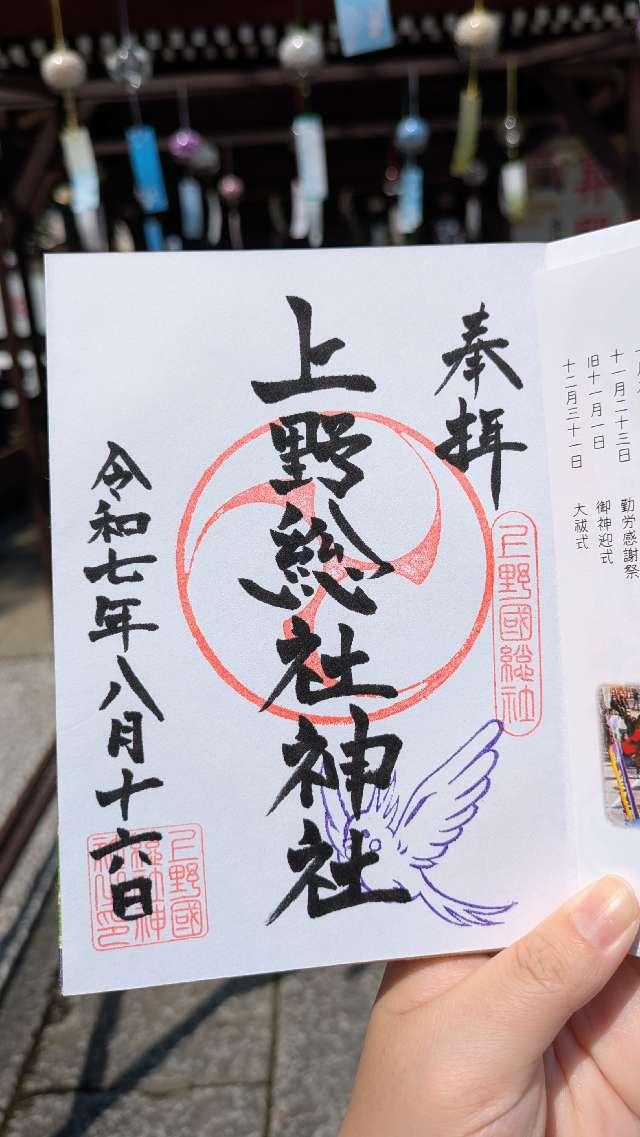 十一月二十三日 勤労感謝祭
旧十一月一日 御神迎式
十二月三十一日 大祓式
奉拝
上野國総社
上野総社神社
令和七年八月十六日
上野國
総社神
社之印